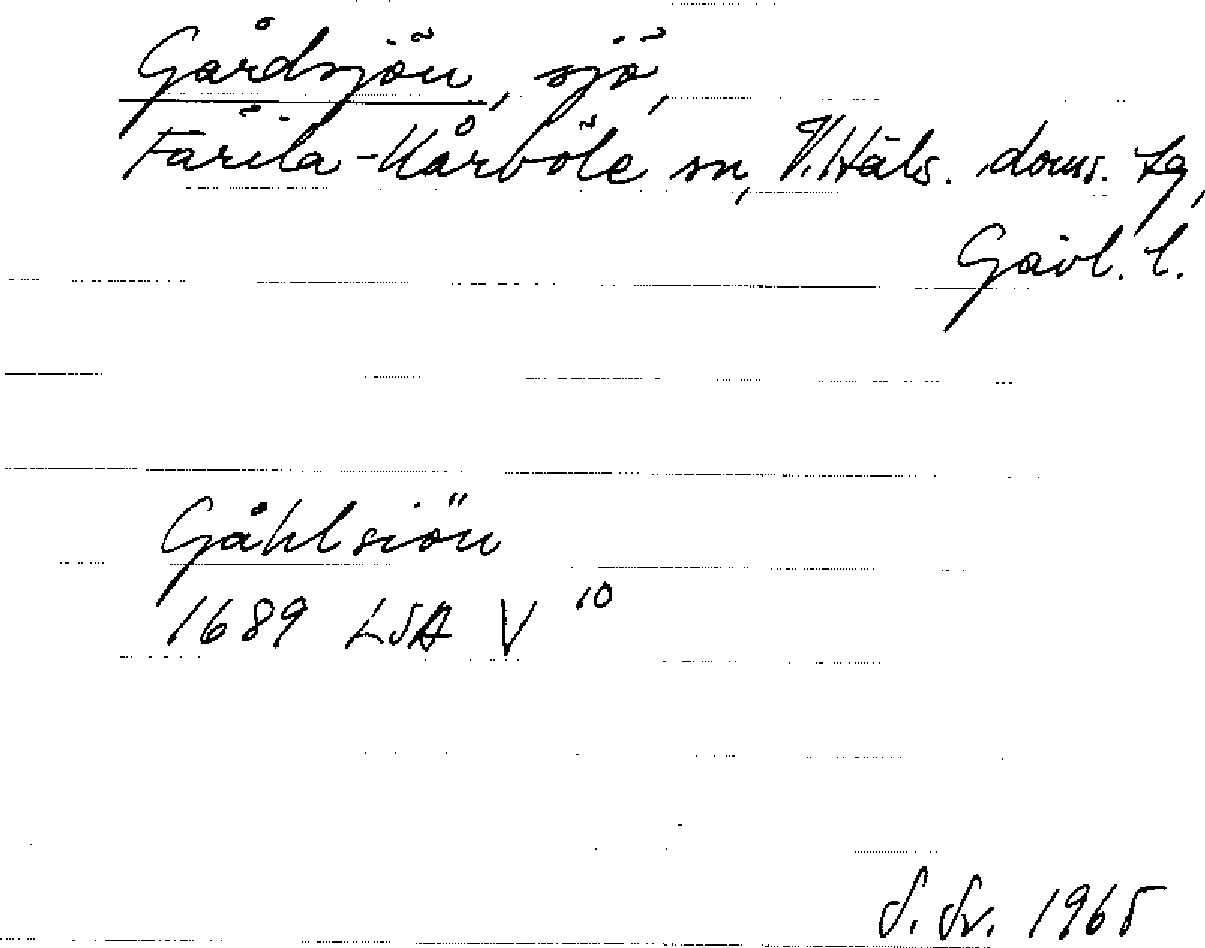 Gårdsjön, sjö,
Färila-Kårböle sn, V. Häls. doms. tg,
Gävl. l.
Gåhlsiön
1689 LSA V 10
S. Sv. 1965